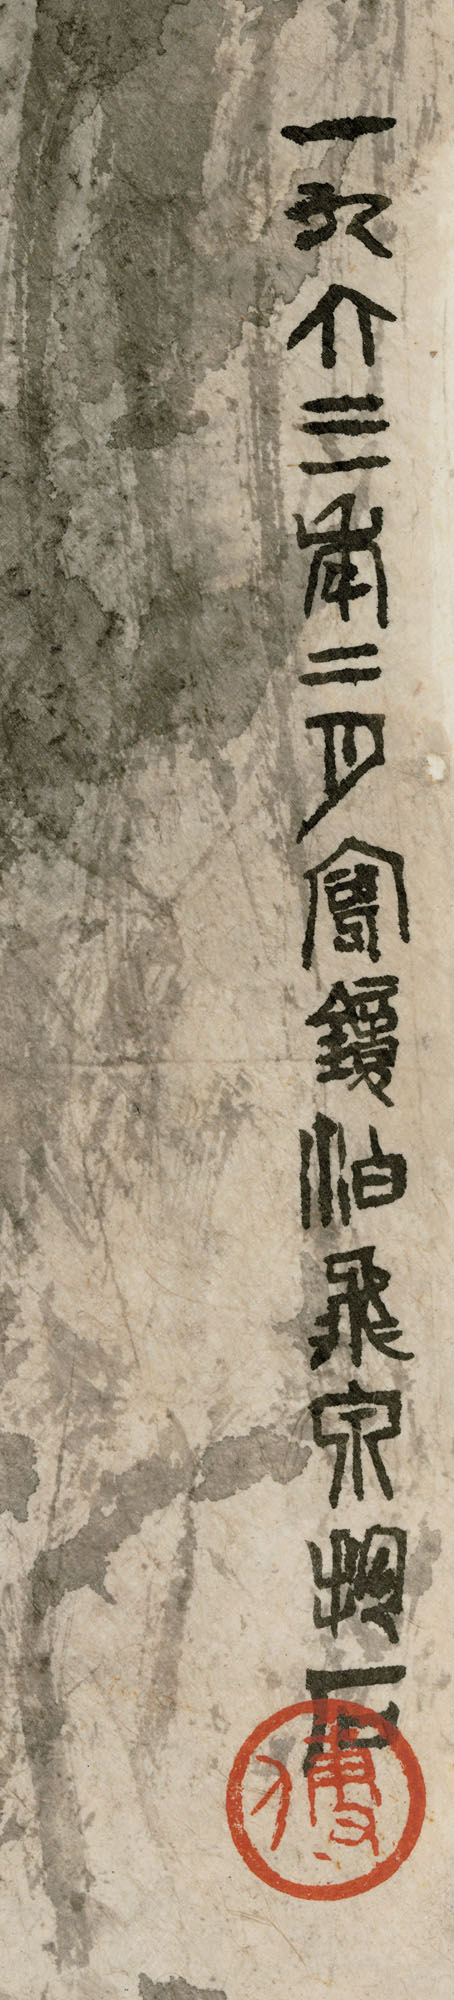 一九六三年二月寫鏡泊飛泉抱石
傅